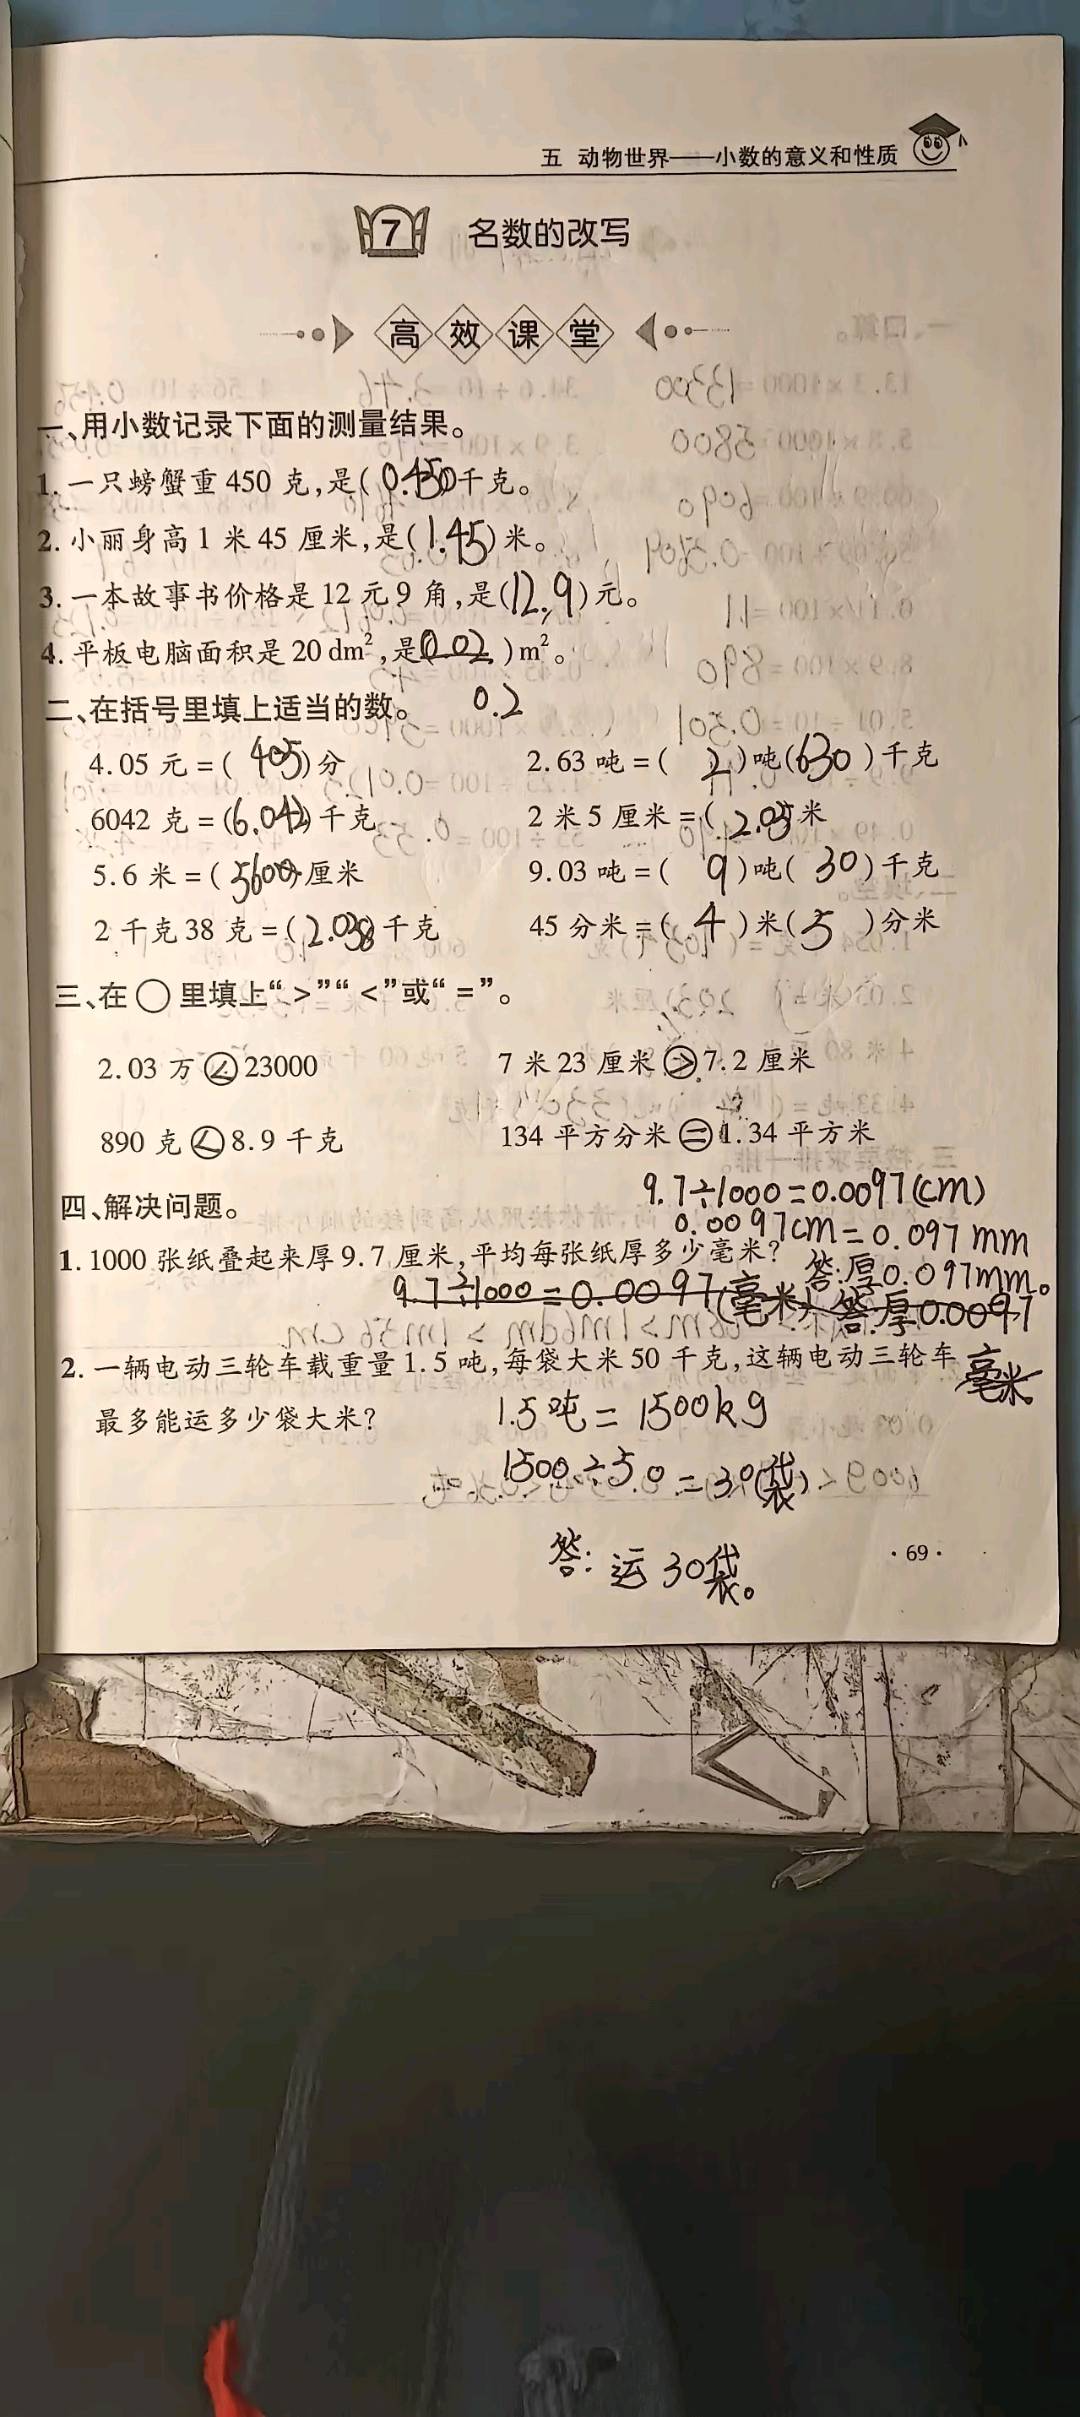 五 动物世界——小数的意义和性质
7 名数的改写
高效课堂
一、用小数记录下面的测量结果。
1. 一只螃蟹重 450 克,是(0.450)千克。
2. 小丽身高 1 米 45 厘米,是(1.45)米。
3. 一本故事书价格是 12 元 9 角,是(12.9)元。
4. 平板电脑面积是 20 dm²,是(0.02)m²。
0.2
二、在括号里填上适当的数。
4.05 元 = (405)分 2.63 吨 = (2)吨(630)千克
6042 克 = (6.042)千克 2 米 5 厘米 = (2.05)米
5.6 米 = (5600)厘米 9.03 吨 = (9)吨(30)千克
2 千克 38 克 = (2.038)千克 45 分米 = (4)米(5)分米
三、在 ○ 里填上“>”“<”或“=”。
2.03 万 < 23000 7 米 23 厘米 > 7.2 厘米
890 克 < 8.9 千克 134 平方分米 = 1.34 平方米
四、解决问题。
9.7÷1000=0.0097(cm)
0.0097cm=0.097mm
1. 1000 张纸叠起来厚 9.7 厘米,平均每张纸厚多少毫米?
答:厚0.097mm。
9.7÷1000=0.0097(毫米) 答:厚0.0097
毫米。
2. 一辆电动三轮车载重量 1.5 吨,每袋大米 50 千克,这辆电动三轮车
最多能运多少袋大米?
1.5吨=1500kg
1500÷50=30(袋)
答:运30袋。
·69·